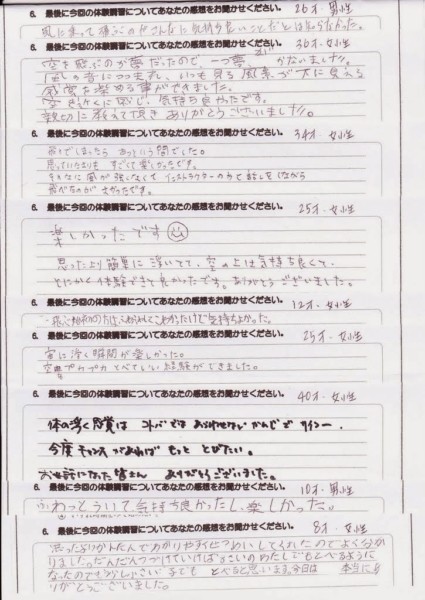 6. 最後に今回の体験講習についてあなたの感想をお聞かせください。 26才 男性
風に乗って飛ぶのがこんなに気持ち良いことだとは知らなかった。
6. 最後に今回の体験講習についてあなたの感想をお聞かせください。 36才 女性
空を飛ぶのが夢だったので、一つ夢がかないました!!
風の音につつまれ、いつも見る風景が大に見える
感覚を楽しめる事ができました。
空を近くに感じ、気持ち良かったです。
親切に教えて頂きありがとうございました!!
6. 最後に今回の体験講習についてあなたの感想をお聞かせください。 34才 女性
飛んでしまったらあっという間でした。
思っていたよりもすごく楽しかったです。
そんなに風が強くなくてインストラクターの方と話をしながら
飛べたのがよかったです。
6. 最後に今回の体験講習についてあなたの感想をお聞かせください。 25才・女性
楽しかったです
思ったより簡単に浮いてて、空の上は気持ち良くて、
とにかく体験できて良かったです。ありがとうございました。
6. 最後に今回の体験講習についてあなたの感想をお聞かせください。 12才・女性
こわかったけど気持ちよかった。
6. 最後に今回の体験講習についてあなたの感想をお聞かせください。 25才・女性
宙に浮く瞬間が楽しかった。
空をプカプカとべていい経験ができました。
6. 最後に今回の体験講習についてあなたの感想をお聞かせください。 40才・女性
体の浮く感覚はコトバではあらわせないかんじでサイコー。
今度チャンスがあればもっととびたい。
お世話になった皆さんありがとうございました。
6. 最後に今回の体験講習についてあなたの感想をお聞かせください。 10才・男性
ふわっとういて気持ち良かったし、楽しかった。
6. 最後に今回の体験講習についてあなたの感想をお聞かせください。 8才・女性
思ったよりかんたんでわかりやすくせつめいしてくれたのでよく分か
りました。だんだんつづけていけばよこいのわたしでもとべるように
なったのでうれしい 子どももとべると思います。今日は 本当にあ
りがとうございました。